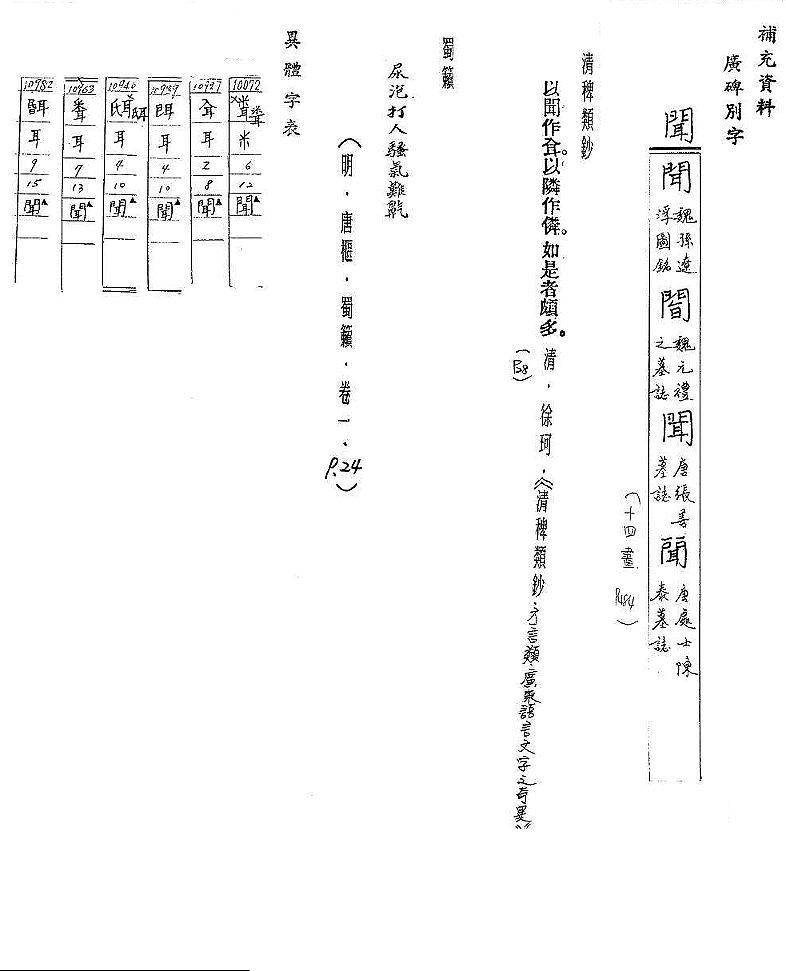 補充資料
廣碑別字
聞
聞 魏孫遼浮圖銘
魏元禮之墓誌
聞 唐張善墓誌
唐處士陳泰墓誌
(十四畫 P484)
清稗類鈔
以聞作㑹。以隣作僯。如是者頗多。
清.徐珂.《清稗類鈔.方言類.廣東語言文字之奇異》
(B8)
蜀籟
尿泡打人騷氣難乾
(明.唐樞.蜀籟.卷一.P.24)
異體字表
10072 米 6 12 聞▲
10927 耳 2 8 聞▲
10939 耳 4 10 聞▲
10940 耳 4 10 聞▲
10963 耳 7 13 聞▲
10982 耳 9 15 聞▲